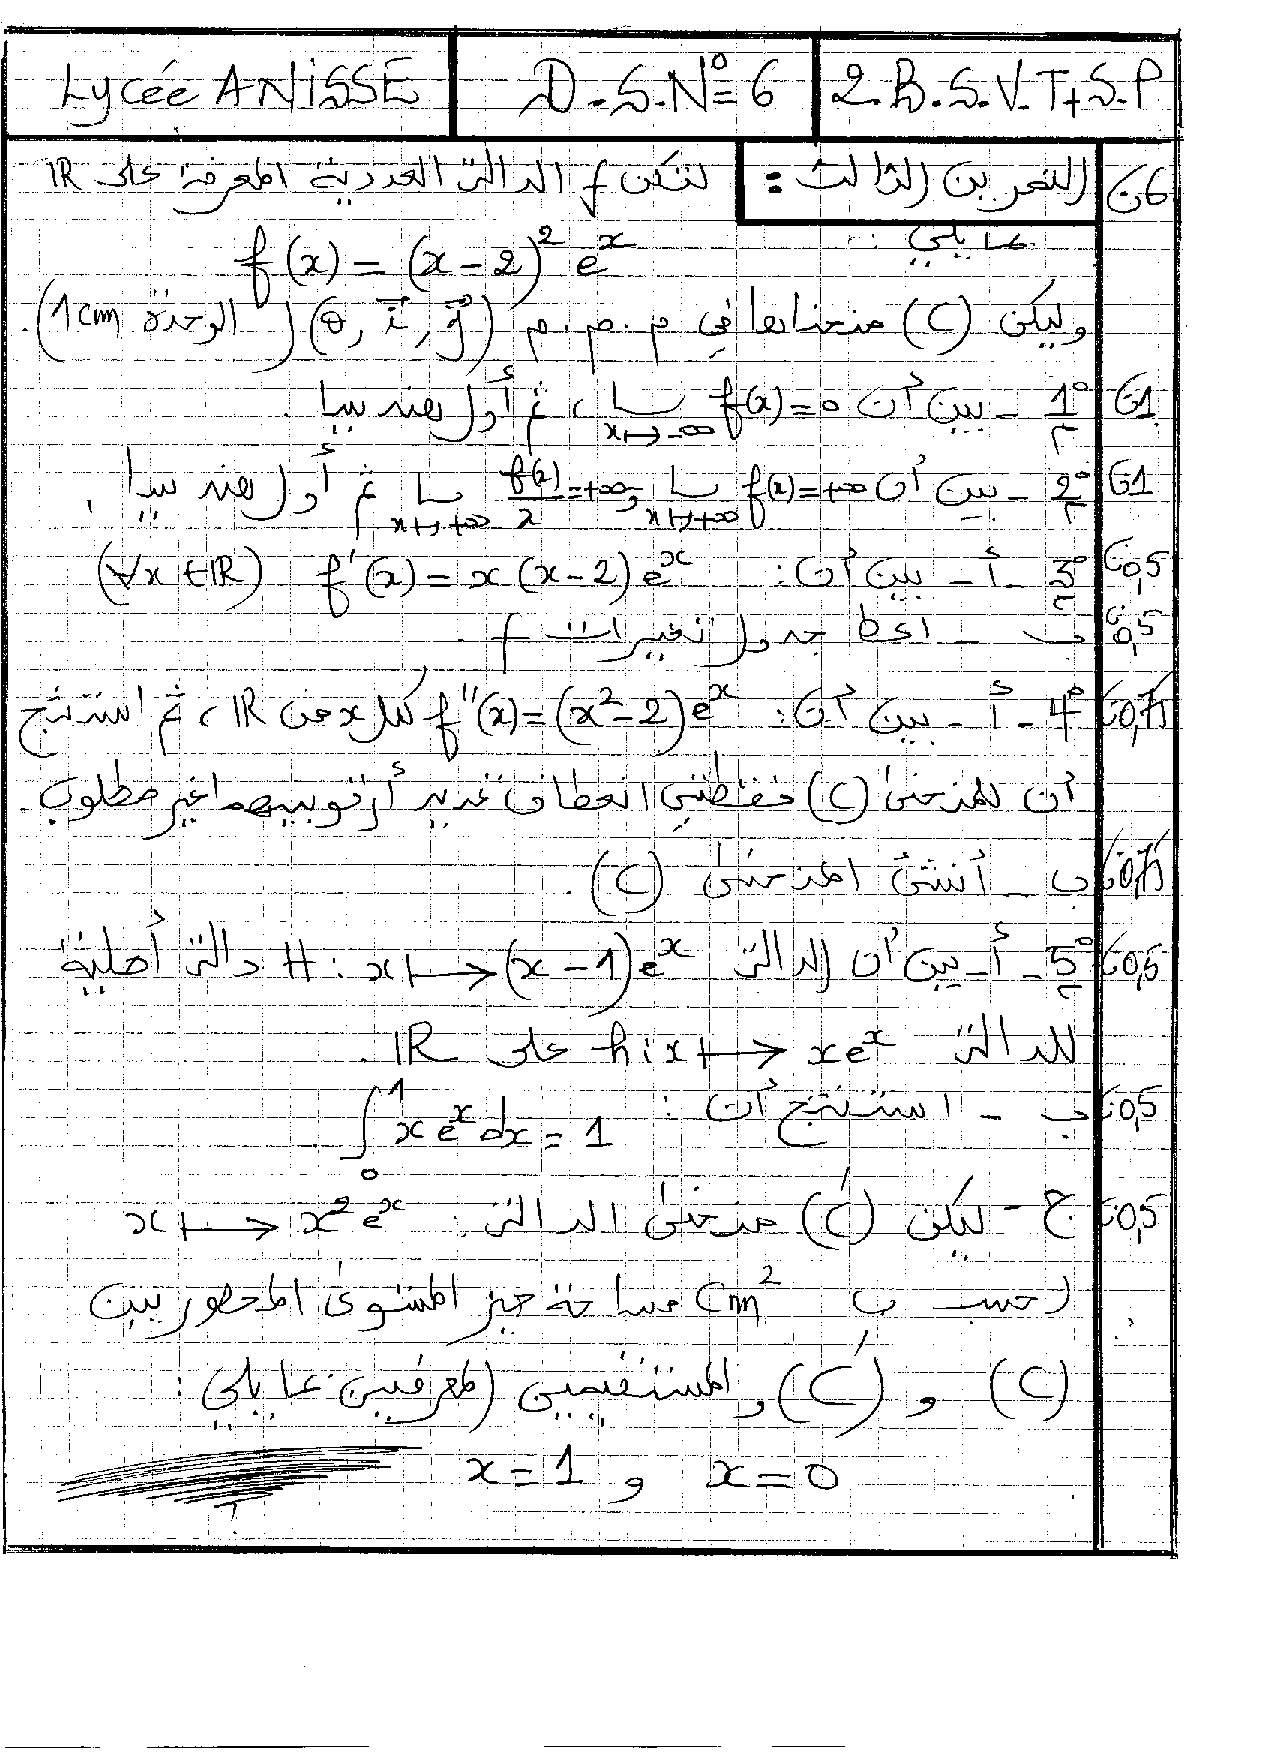 Lycée ANISSE
D.S.N°=6
2.B.S.V.T+S.P
6ن
التمرين الثالث : لتكن f الدالة العددية المعرفة على IR
بما يلي :
f(x) = (x-2)² eˣ
وليكن (C) منحناها في م.م.م (O, i⃗, j⃗) (الوحدة 1cm).
1ن 1° - بين أن lim_{x→-∞} f(x)=0 ، ثم أول هندسيا .
1ن 2° - بين أن lim_{x→+∞} f(x)=+∞ و lim_{x→+∞} f(x)/x =+∞ ثم أول هندسيا .
0,5ن 3° - أ - بين أن : f'(x) = x(x-2)eˣ (∀x∈IR)
0,5ن ب - اعط جدول تغيرات f .
0,75ن 4° - أ - بين أن : f''(x) = (x²-2)eˣ لكل x من IR ، ثم استنتج
أن للمنحنى (C) نقطتي انعطاف تحديد أرتوبيهما غير مطلوب .
0,75ن ب - أنشئ المنحنى (C) .
0,5ن 5° - أ - بين أن الدالة H : x ↦ (x-1)eˣ دالة أصلية
للدالة h : x ↦ xeˣ على IR .
0,5ن ب - استنتج أن : ∫₀¹ xeˣdx = 1 .
0,5ن ج - ليكن (C') منحنى الدالة : x ↦ x²eˣ
احسب ب cm² مساحة حيز المستوى المحصور بين
(C) و (C') والمستقيمين المعرفين بما يلي :
x=0 و x=1